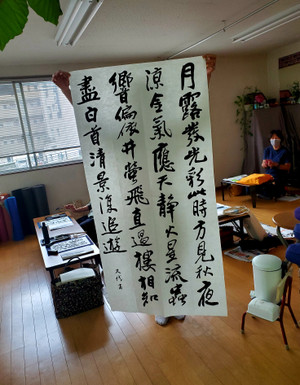 月露發光彩此時方見秋夜
涼金氣應天静火星流蟲
響偏依井螢飛直過樓相知
盡白首清景復追遊